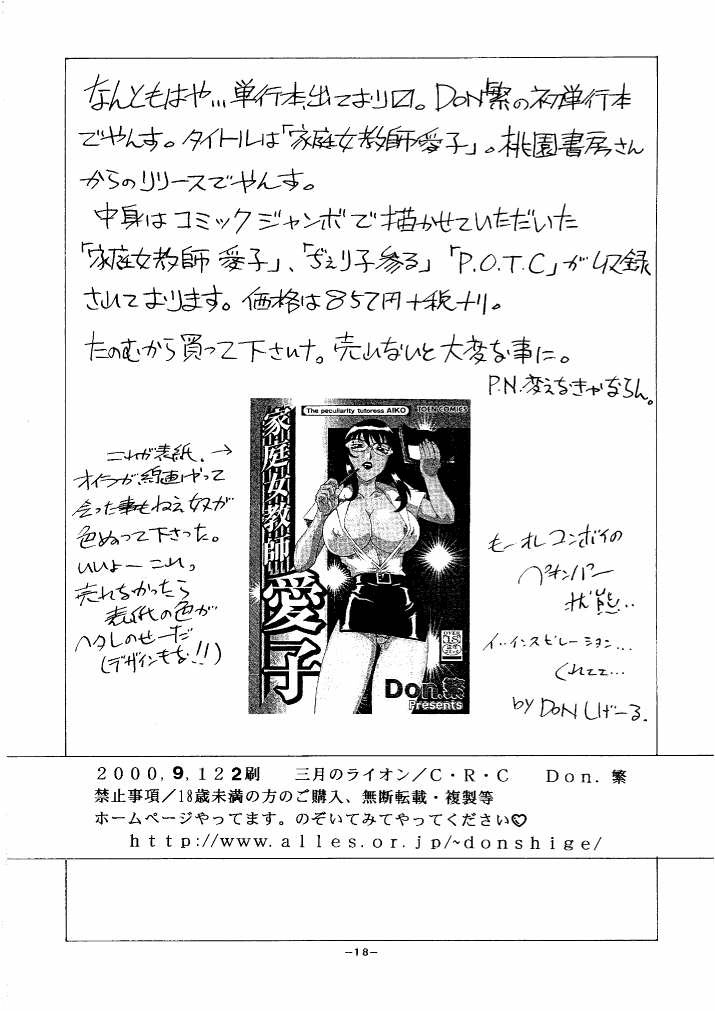 なんともはや…単行本出ております。DON繁の初単行本
でやんす。タイトルは「家庭女教師愛子」。桃園書房さん
からのリリースでやんす。
中身はコミックジャンボで描かせていただいた
「家庭女教師 愛子」、「ぢぇり子参る」「P.O.T.C」が収録
されております。価格は857円+税ナリ。
たのむから買って下さいナ。売れないと大変な事に。
P.N.変えなきゃならん。
The peculiarity tutoress AIKO
TOEN COMICS
家庭女教師
愛子
Don.繁
Presents
これが表紙、→
オイラが線画やって
会った事もねえ奴が
色ぬって下さった。
いいよー これっ
売れなかったら
表紙の色が
ヘタレのせーだ
(デザインもな!!)
もーれコンボイの
状態…
イ…インスピレーション…
くれてて…
by DON しげーる.
2000,9,12 2刷 三月のライオン/C・R・C Don. 繁
禁止事項/18歳未満の方のご購入、無断転載・複製等
ホームページやってます。のぞいてみてやってください♡
http://www.alles.or.jp/~donshige/
-18-